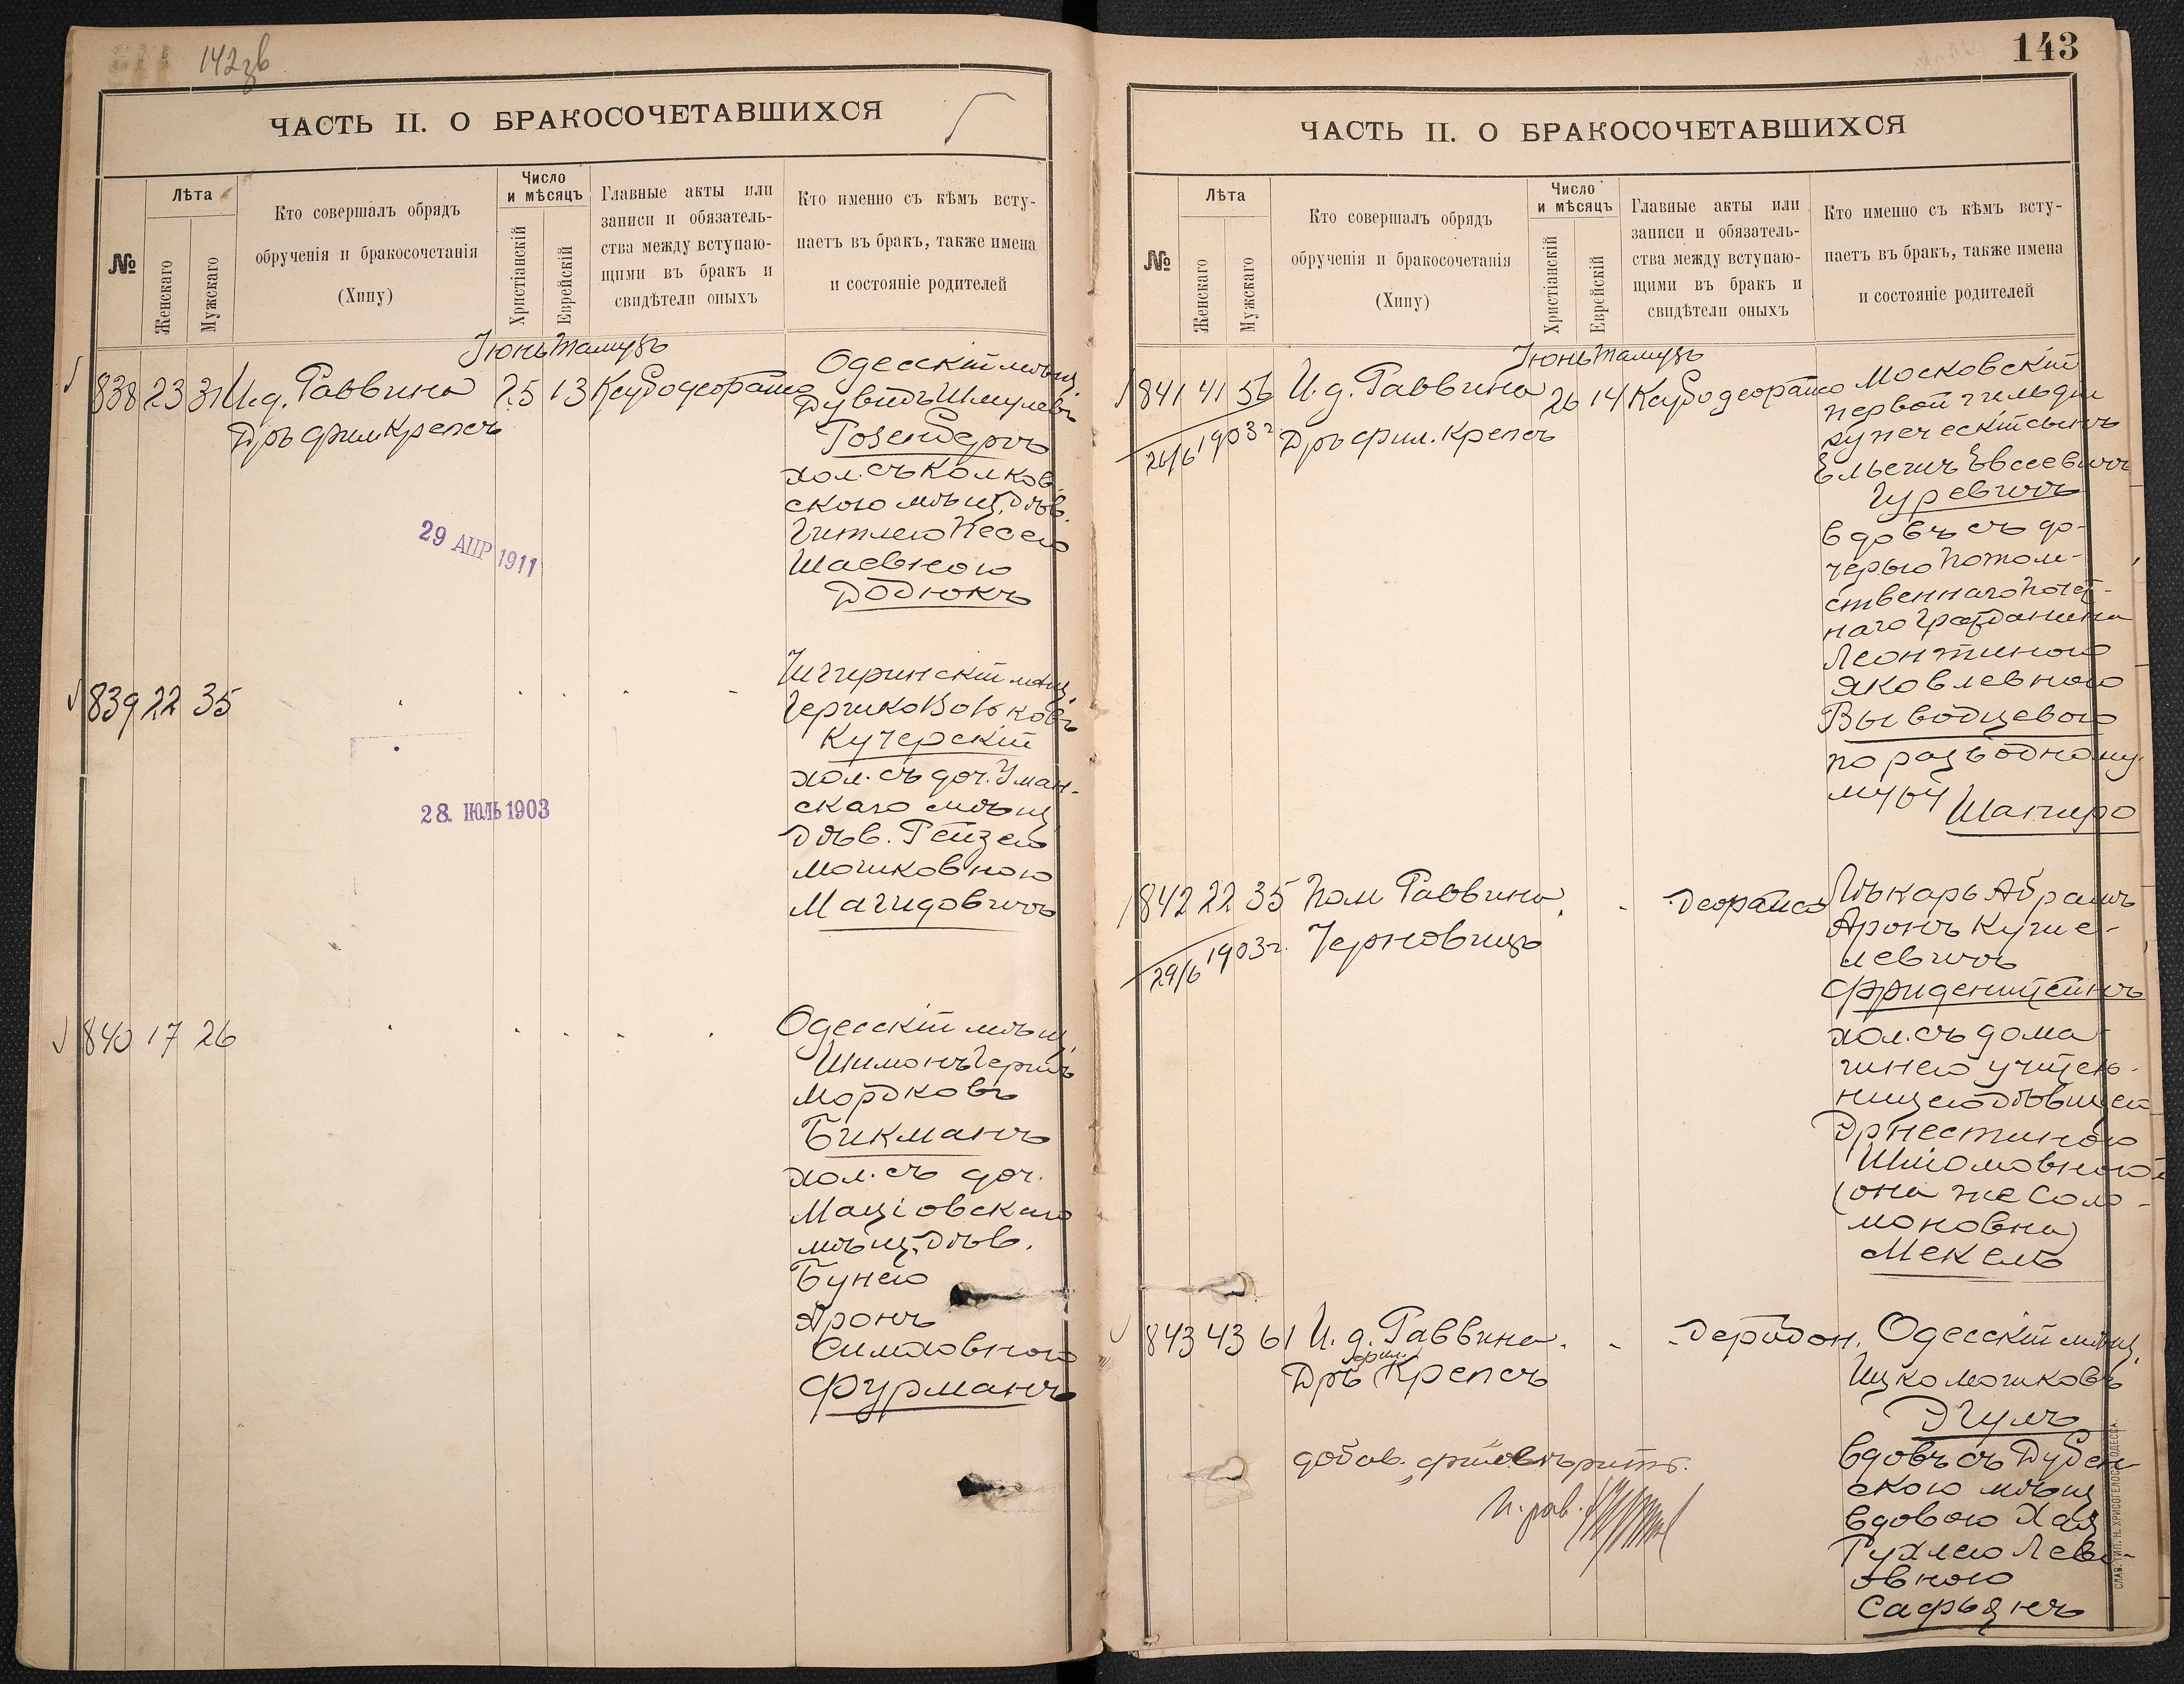 142зв
ЧАСТЬ II. О БРАКОСОЧЕТАВШИХСЯ
№
Лѣта
Женскаго
Мужскаго
Кто совершалъ обрядъ
обрученія и бракосочетанія
(Хипу)
Число
и мѣсяцъ
Христіанскій
Еврейскій
Главные акты или
записи и обязатель-
ства между вступаю-
щими въ бракъ и
свидѣтели оныхъ
Кто именно съ кѣмъ всту-
паетъ въ бракъ, также имена
и состояніе родителей
Іюнь Тамузъ
838 23 31 И.д. Раввина 25 13
Дръ фил Крепсъ
Одесскій мѣщ.
Дувидъ Шмулевъ
Розенбергъ
хол. съ Колков-
скою мѣщ. дѣв.
Гитлею Песею
Шаевною
Додюкъ
29 АПР 1911
839 22 35
Чигиринскій мѣщ.
Гершко Вольковъ
Кучерскій
хол. съ доч. Уман-
скаго мѣщ.
дѣв. Рейзею
Мошковною
Магидовичъ
28. ІЮЛЬ 1903
840 17 26
Одесскій мѣщ.
Шимонъ Гершъ
Мордковъ
Бикманъ
хол. съ доч.
Маціовскаго
мѣщ. дѣв.
Бунею
Аронъ
Симховною
Фурманъ
143
ЧАСТЬ II. О БРАКОСОЧЕТАВШИХСЯ
№
Лѣта
Женскаго
Мужскаго
Кто совершалъ обрядъ
обрученія и бракосочетанія
(Хипу)
Число
и мѣсяцъ
Христіанскій
Еврейскій
Главные акты или
записи и обязатель-
ства между вступаю-
щими въ бракъ и
свидѣтели оныхъ
Кто именно съ кѣмъ всту-
паетъ въ бракъ, также имена
и состояніе родителей
Іюнь Тамузъ
841 41 56 И.д. Раввина 26 14
26/6 1903г. Дръ фил. Крепсъ
Московскій
первой гильдіи
купеческій сынъ
Ельсинъ Евсеевичъ
Гуревичъ
вдовъ съ до-
черью потом-
ственнаго почет-
наго гражданина
Леонтиною
Яковлевною
Выводцевою
по разводному
мужу Шапиро
842 22 35 Пом Раввина
29/6 1903г. Черновицъ
Лѣкарь Абрамъ
Аронъ Куше-
левичъ
Фриденштейнъ
хол. съ дома-
шнею учитель-
ницею дѣвицей
Эрнестиною
Шліомовною
(она же Соло-
моновна)
Мекель
843 43 61 И.д. Раввина
Дръ фил. Крепсъ
Одесскій мѣщ.
Ицко Мошковъ
Эгумъ
вдовъ съ Дубен-
скою мѣщ.
вдовою Хая
Рухлею Лейб-
овною
Сафьянъ
добав. "фил" вѣрить.
И. рав.
СЛАВ. ТИП. Н. ХРИСОГЕЛОСЪ ОДЕССА.